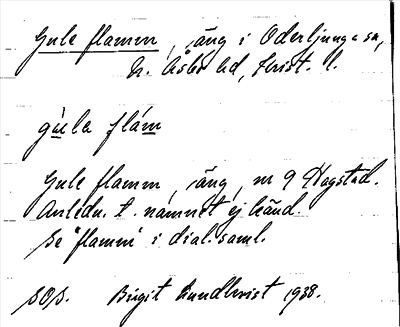 Gule flamm, äng i Oderljunga sn,
N. Åsbo hd, Krist. l.
gula flam
Gule flamm, äng, nr 9 Hagstad.
Anledn. t. namnet ej känd.
Se "flamm" i dial. saml.
SOS. Birgit Lundkvist 1938.